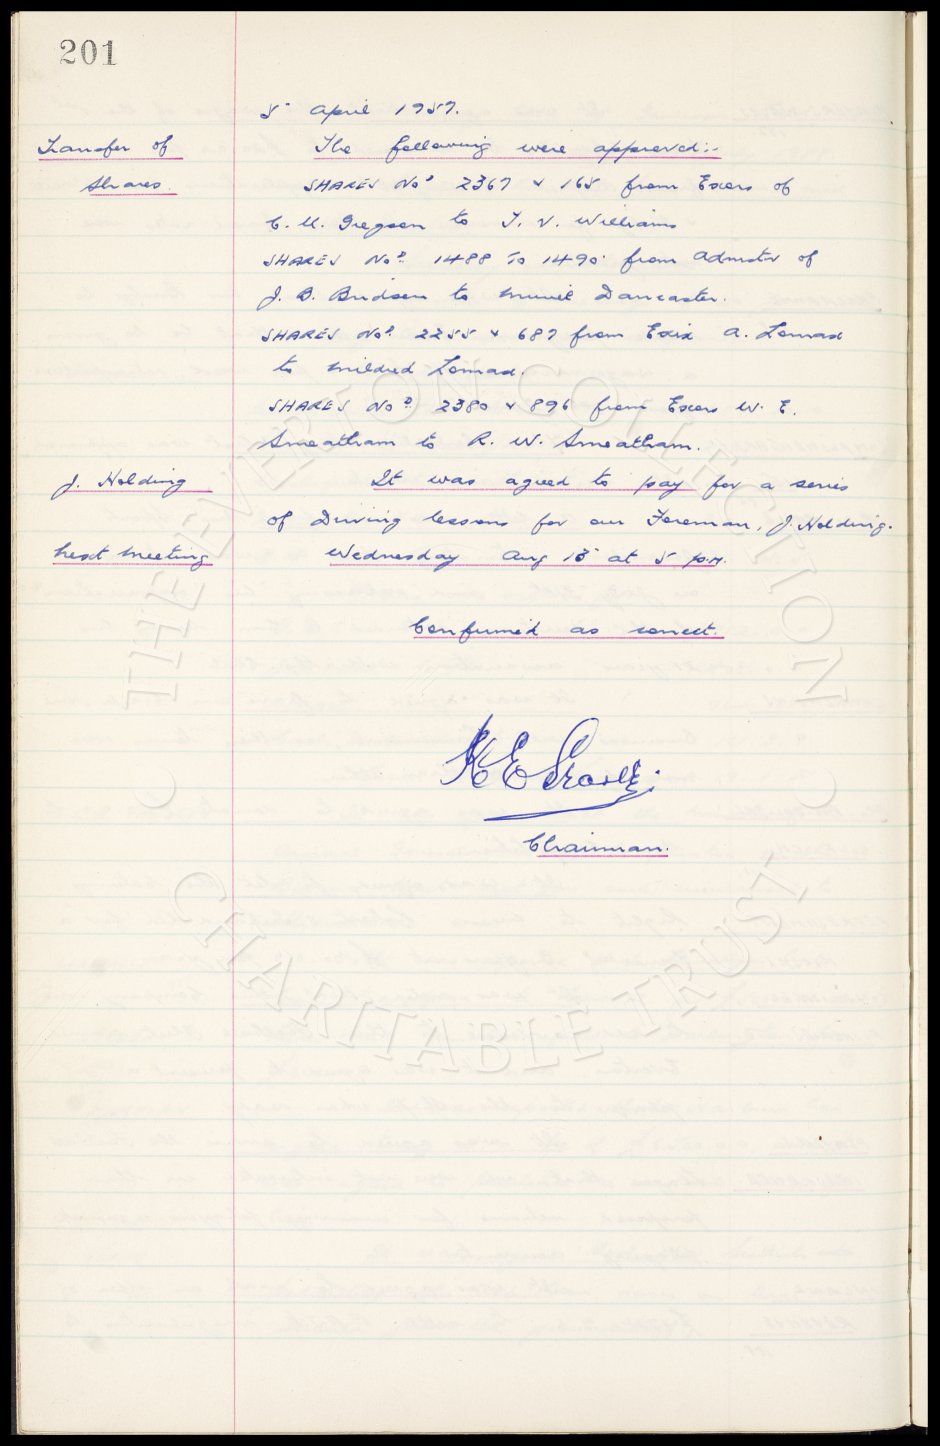 201
5 April 1957.
Transfer of
The following were approved:-
Shares.
SHARES Nos 2367 & 165 from Exors of
C. M. Gregson to T. V. Williams
SHARES Nos. 1488 To 1490 from Admstr of
J. B. Bridson to Muriel Dancaster.
SHARES Nos. 2255 & 687 from Exix A. Lomas
to Mildred Lomas.
SHARES Nos. 2380 & 896 from Exors W. E.
Smeatham to R. W. Smeatham.
J. Holding
It was agreed to pay for a series
of Driving lessons for our Foreman, J. Holding.
Next Meeting
Wednesday Aug at 5 p.m.
Confirmed as correct.
Chairman.
THE EVERTON COLLECTION
CHARITABLE TRUST